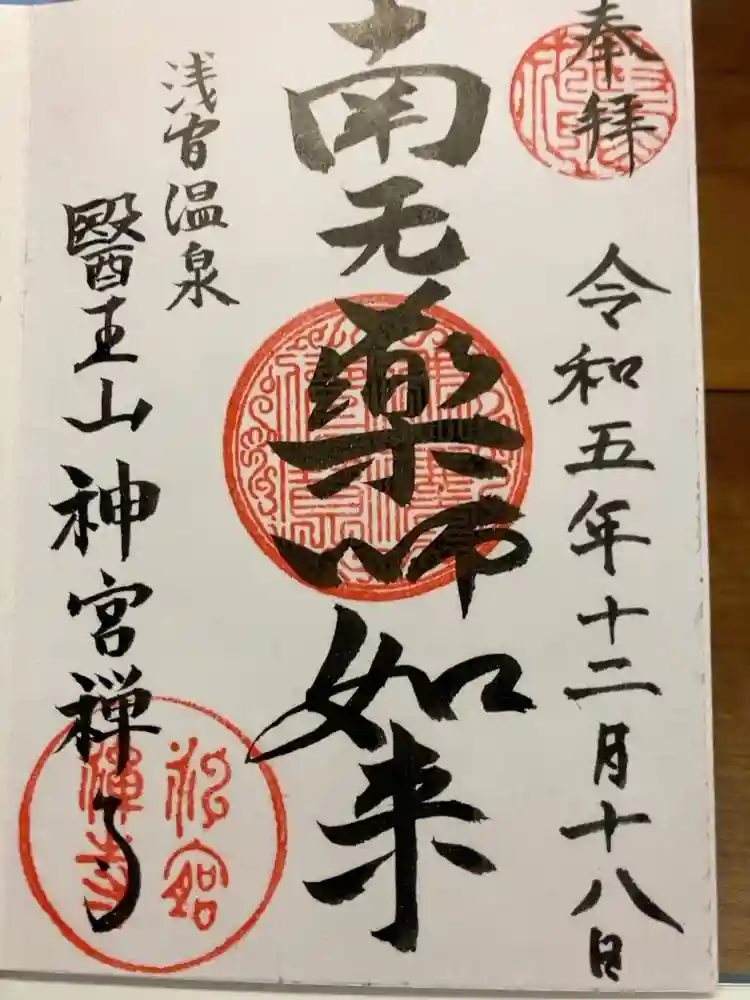 奉拝
令和五年十二月十八日
南无薬師如来
浅間温泉
醫王山神宮禅寺
神宮
禅寺